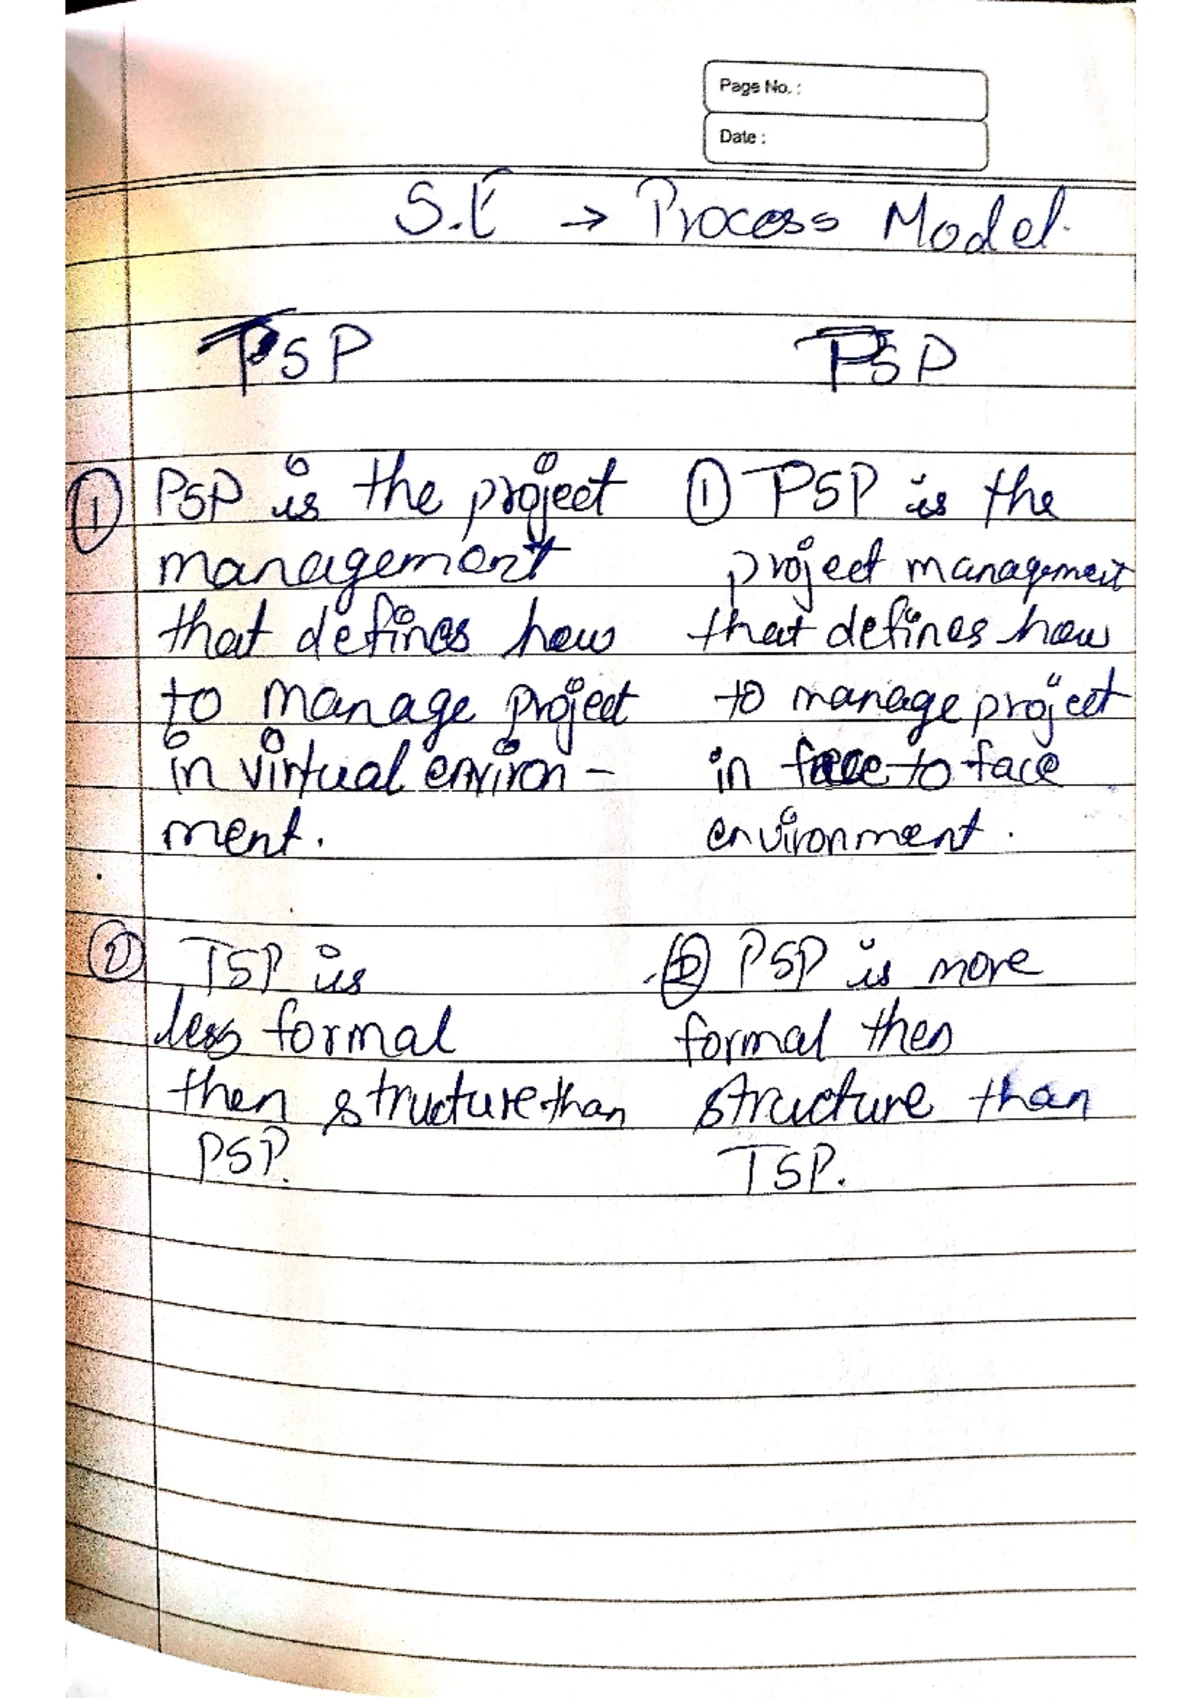 Page No. :
Date :
S.E → Process Model.
PSP
PSP
① PSP is the project
management
that defines how
to manage project
in virtual environ -
ment.
① PSP is the
project management
that defines how
to manage project
in face to face
environment.
② TSP is
less formal
then structure than
PSP.
② PSP is more
formal then
structure than
TSP.